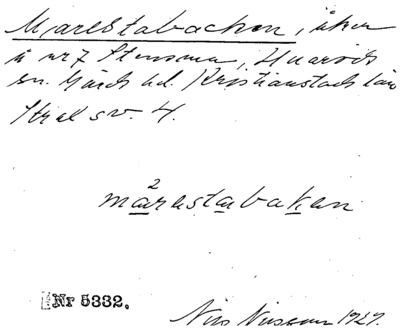 Marestabacken, åker
å nr 7 Stensma, Huaröds
sn. Gärds hd. Kristianstads län
Stral sv. 4.
mårestabakan
Nr 5332.
Nils 1929.